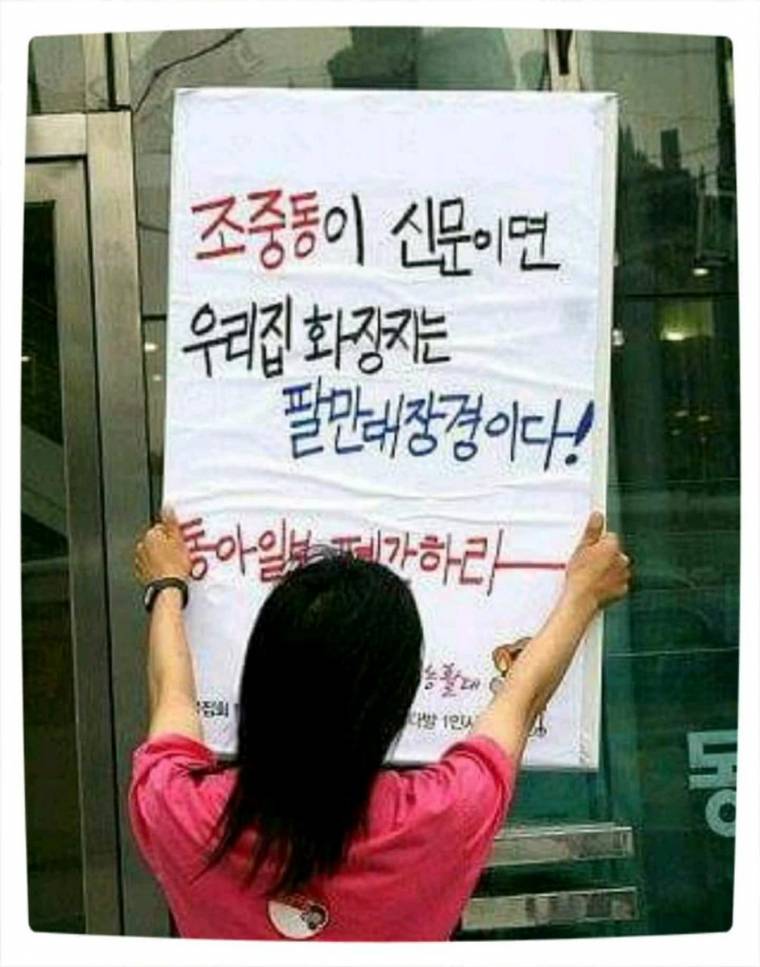 조중동이 신문이면
우리집 화장지는
팔만대장경이다!
동아일보 폐간하라
1인시
동